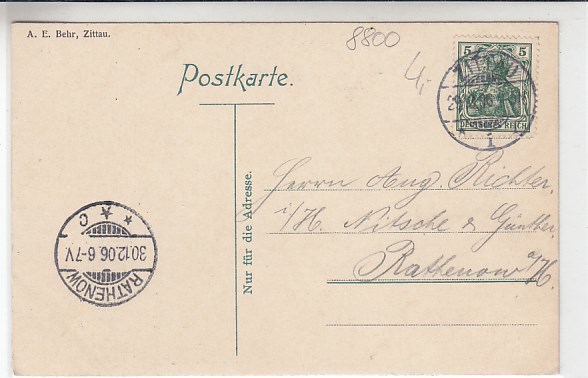 A. E. Behr, Zittau.
8800
4,-
Postkarte.
5 5
ZITTAU
29.12.06
DEUTSCHES REICH
1
Nur für die Adresse.
Herrn Aug. Richter.
i/H. Nitsche & Günther
Rathenow a/H.
RATHENOW
30.12.06. 6-7V.
* C